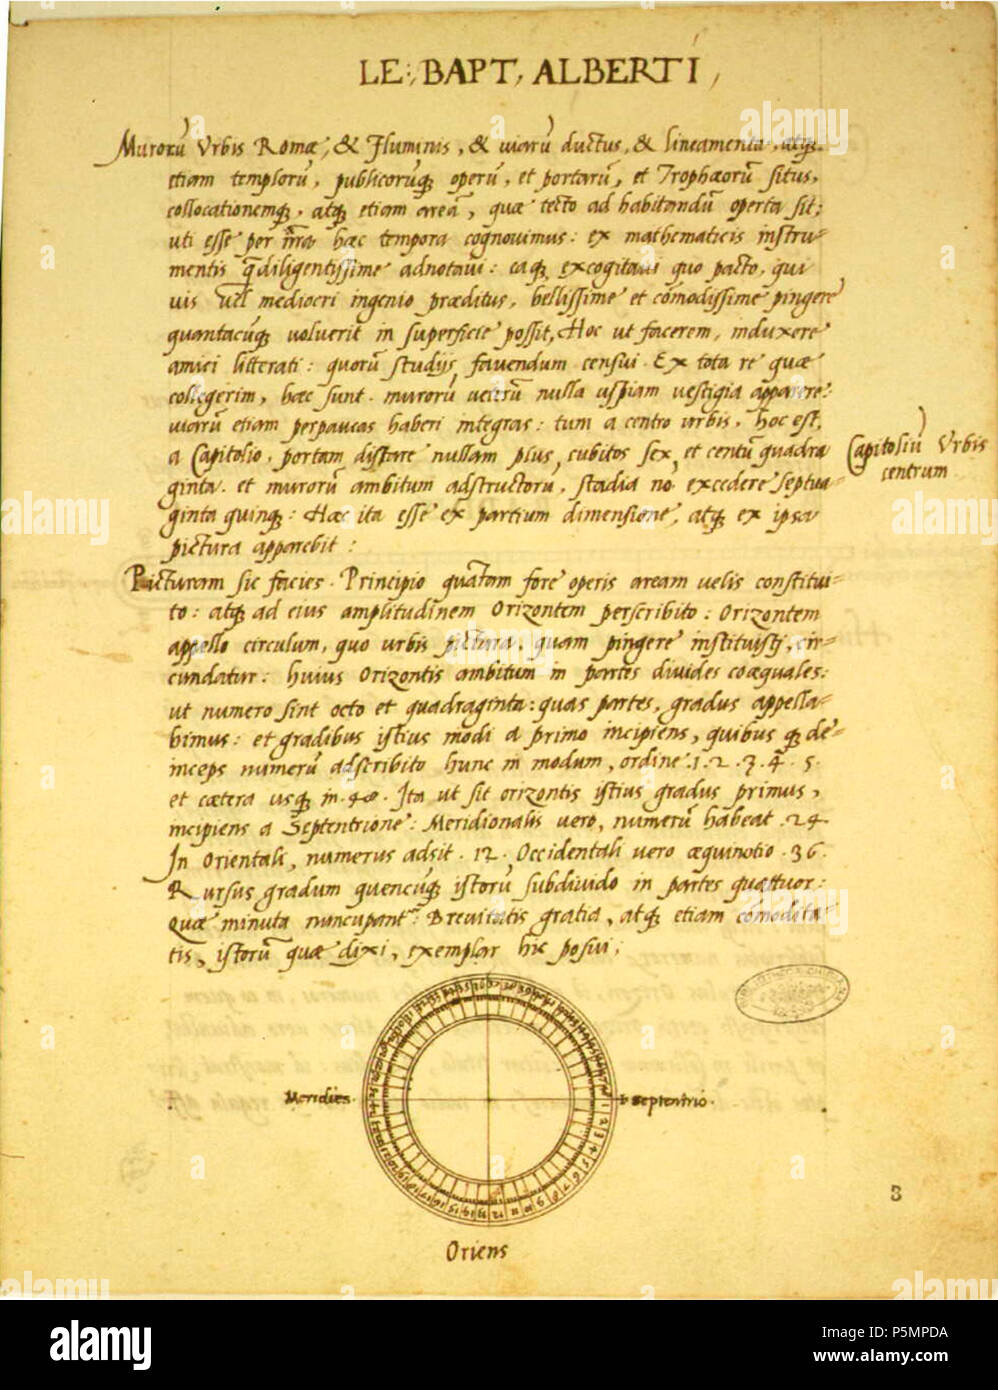 LE:, BAPT, ALBERTI,
Murorū Urbis Romæ, & Fluminis, & viarū ductus, & lineamenta, atq̨
etiam templorū, publicorūq̨ operū, et portarū, et Trophæorū situs,
collocationemq̨, atq̨ etiam areā, quæ tecto ad habitandū operta sit;
uti esse per nr̄a hæc tempora cognovimus: ex mathematicis instru=
mentis q̄diligentissime adnotavi: eaq̨ excogitavi quo pacto, qui
vis vel mediocri ingenio præditus, bellissime et cōmodissime pingere
quantacūq̨ voluerit in superficie possit, Hoc ut facerem, induxere
amici litterati: quorū studijs favendum censui. Ex tota re quæ
collegerim, hæc sunt. murorū veterū nulla uspiam vestigia apparere:
viarū etiam perpaucas haberi integras: tum a centro urbis, hoc est,
a Capitolio, portam distare nullam plus, cubitos sex, et centū quadra
Capitoliū Urbis
centrum
ginta. et murorū ambitum adstructorū, stadia nō excedere septua=
ginta quinq̨: Hæc ita esse ex partium dimensione, atq̨ ex ipsa
pictura apparebit:
Picturam sic facies. Principio quātam fore operis aream velis constitui=
to: atq̨ ad eius amplitudinem Orizontem perscribito: Orizontem
appello circulum, quo urbis pictura, quam pingere instituisti, cir=
cundatur: huius Orizontis ambitum in partes divides coæquales:
ut numero sint octo et quadraginta: quas partes, gradus appella=
bimus: et gradibus istius modi a primo incipiens, quibus q̨ de=
inceps numerū adscribito hunc in modum, ordine .1. 2. 3. 4. 5.
et cætera usq̨ in .48. Ita ut sit orizontis istius gradus primus,
incipiens a Septentrione: Meridionalis vero, numerū habeat .24
In Orientali, numerus adsit .12. Occidentali vero æquinotio .36.
Rursus gradum quencūq̨ istorū subdivido in partes quattuor:
Quæ minuta nuncupant: Brevitatis gratia, atq̨ etiam cōmodita
tis, istorū quæ dixi, exemplar hic posui;
Meridies.
1 septentrio.
Oriens
3
alamy
Image ID: P5MPDA
www.alamy.com